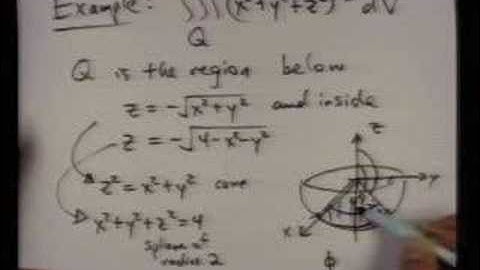 Example: ∭ (x²+y²+z²) dV
Q
Q is the region below
z = -√x²+y² and inside
z = -√4-x²-y²
z² = x²+y² cone
x²+y²+z² = 4
sphere of
radius 2
z
y
x
ϕ